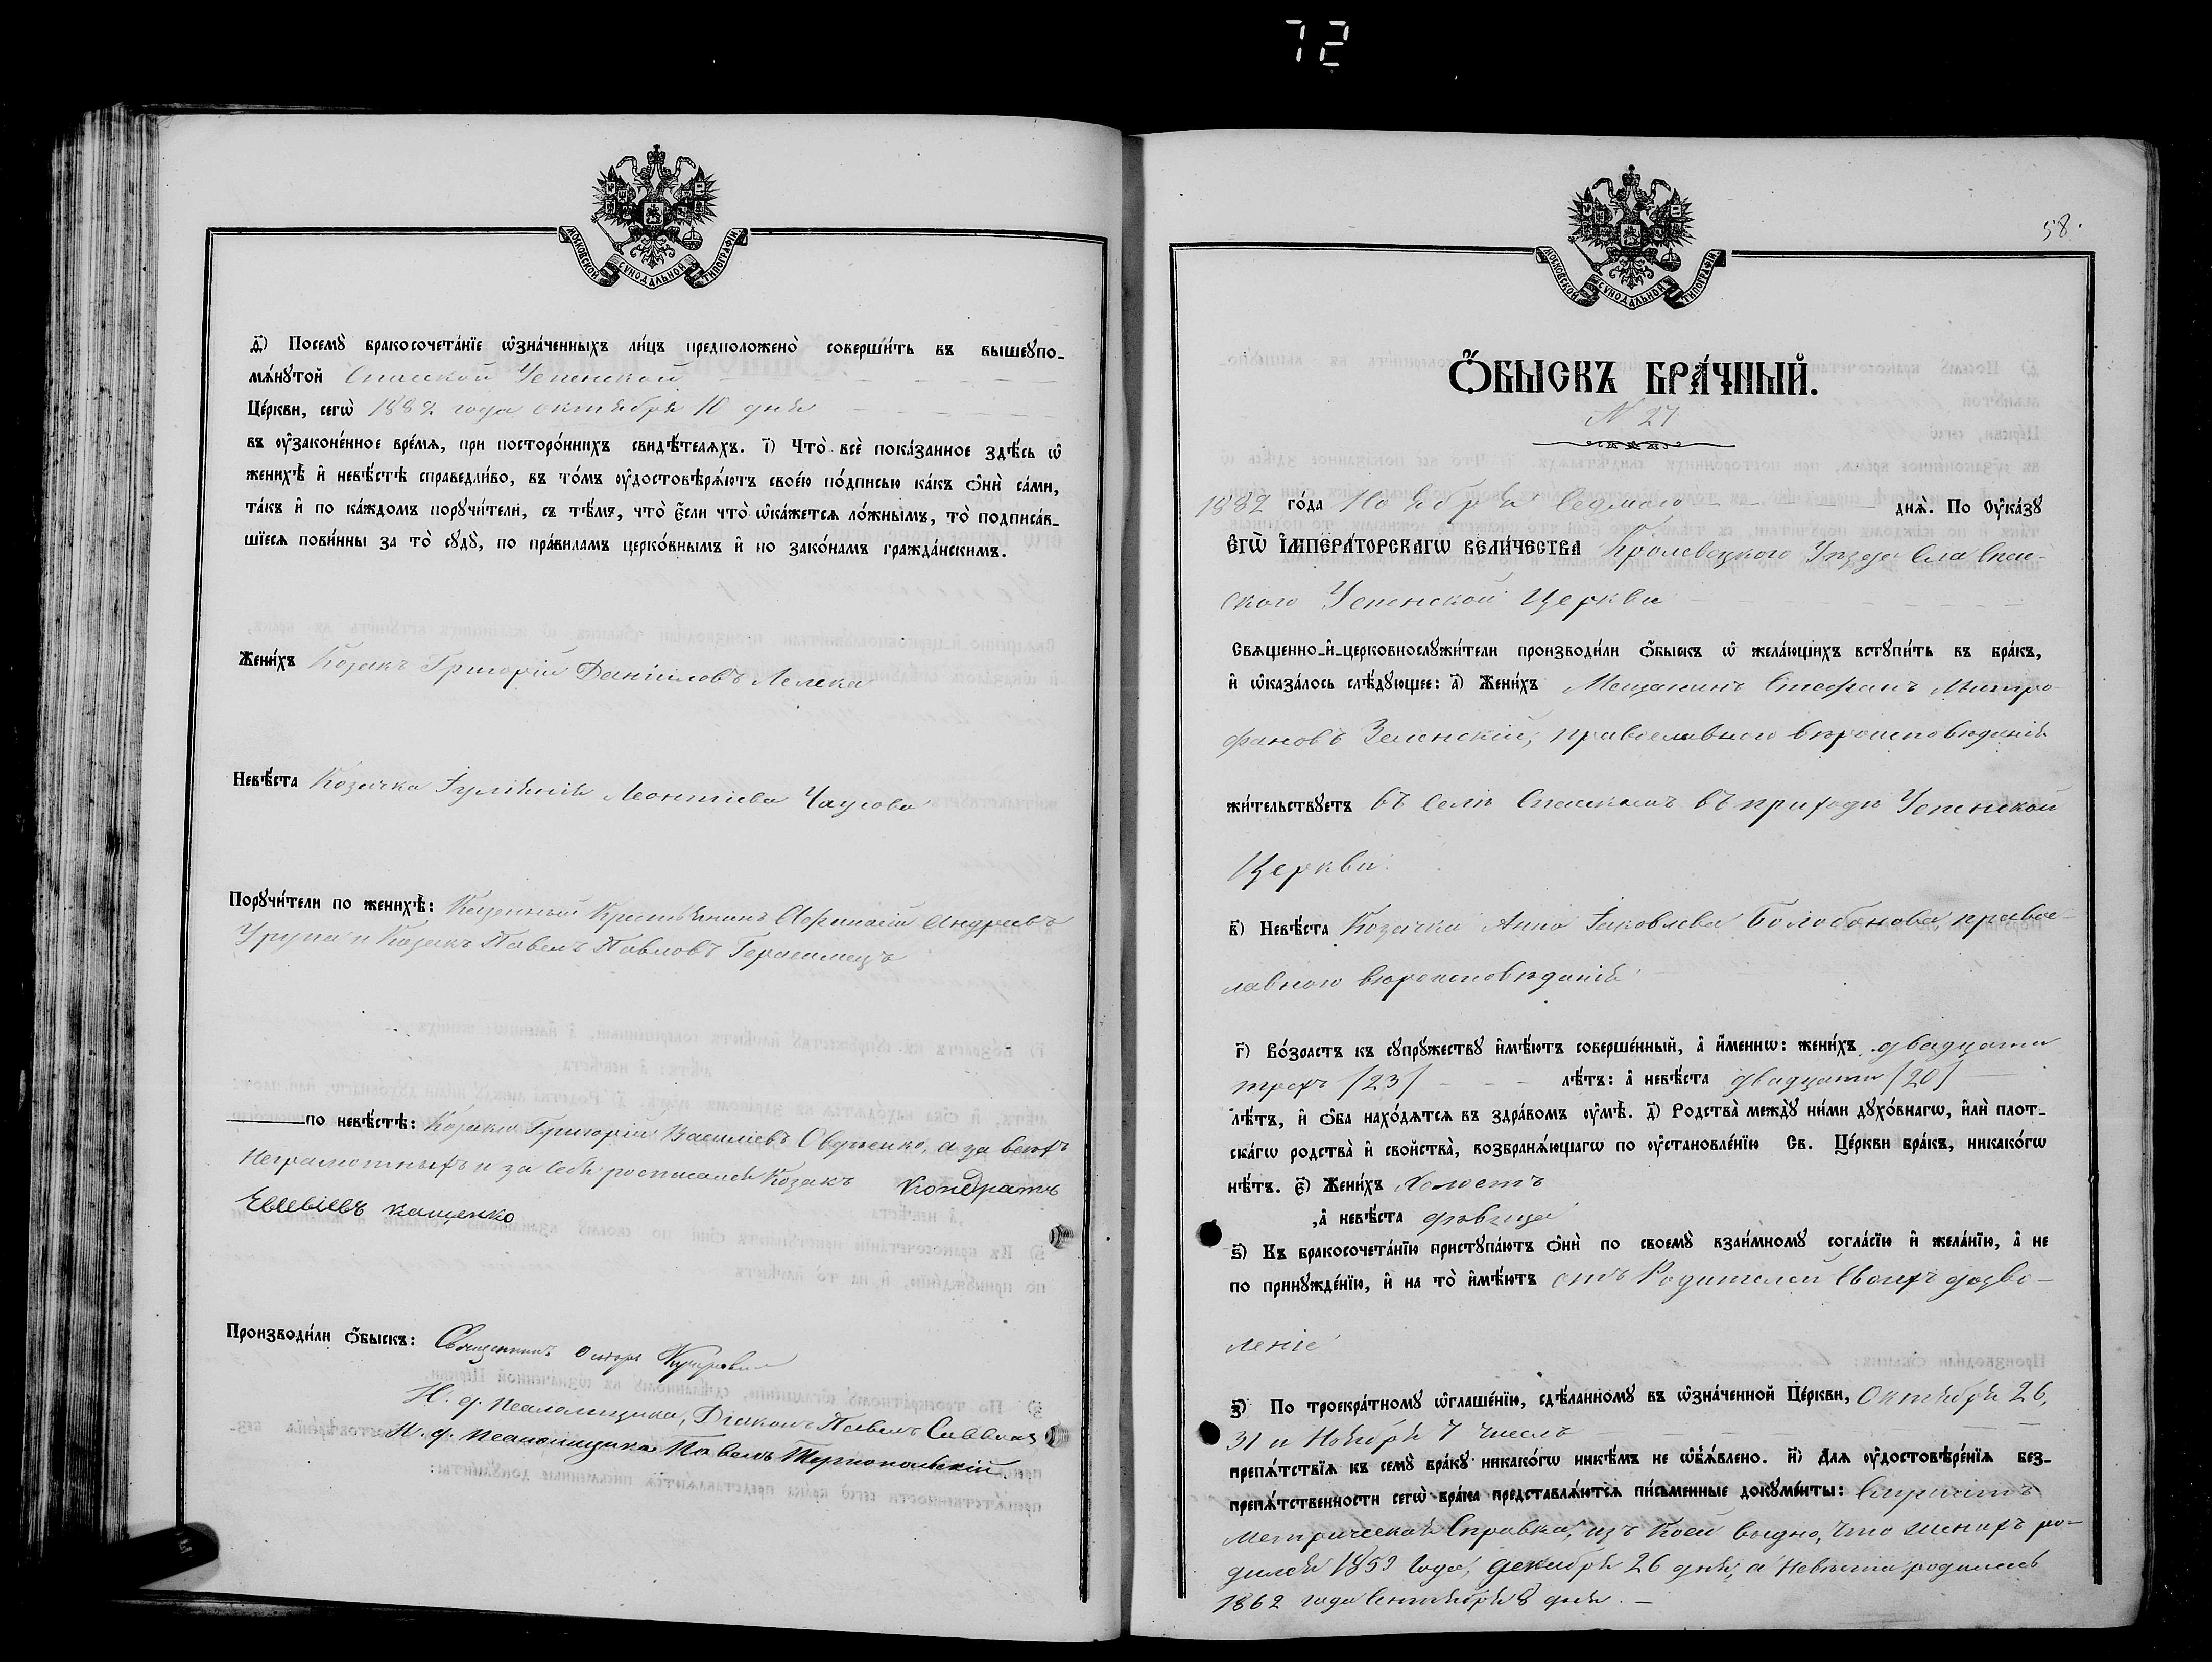 72
МОСКОВСКОЙ СѴНОДАЛЬНОЙ ТИПОГРАФІИ
д҃) Посемꙋ̀ бракосочета́нїе ѡ҆зна́ченныхъ ли́цъ предположено̀ соверши́ть въ вышеꙋпо-
мѧ́нꙋтой Спасской Успенской
Це́ркви, сегѡ̀ 1882 года октября 10 дня
въ ᲂу҆законе́нное вре́мѧ, при посторо́ннихъ свидѣ́телѧхъ. і҃) Что̀ всѐ пока́занное здѣ́сь ѡ҆
женихѣ̀ и҆ невѣ́стѣ справедли́во, въ то́мъ ᲂу҆достовѣрѧ́ютъ свое́ю по́дписью ка́къ ѻ҆нѝ са́ми,
та́къ и҆ по ка́ждомъ порꙋчи́тели, съ тѣ́мъ, что̀ є҆́сли что̀ ѡ҆ка́жетсѧ ло́жнымъ, то̀ подписа́в-
шїесѧ пови́нны за то̀ сꙋдꙋ̀, по пра́виламъ церко́внымъ и҆ по зако́намъ гражда́нскимъ.
Жени́хъ Козакъ Григорій Даніиловъ Лелека
Невѣ́ста Козачка Іуліянія Леонтіева Чаусова
Порꙋчи́тели по женихѣ̀: Казенный Крестьянинъ Афанасій Андреевъ
Урупа и Козакъ Павелъ Павловъ Герасимецъ
по невѣ́стѣ: Козаки Григорій Василіевъ Овдѣенко, а за всѣхъ
неграмотныхъ и за себя росписался Козакъ Кондратъ
Евсевіевъ кащенко
Производи́ли ѻ҆́быскъ: Священникъ
И. д. псаломщика, Діаконъ Павелъ
И. д. псаломщика Павелъ Тернопольскій.
МОСКОВСКОЙ СѴНОДАЛЬНОЙ ТИПОГРАФІИ
58.
Ѻ҆́БЫСКЪ БРА́ЧНЫЙ.
N 27.
1882 го́да Ноября Седмого днѧ̀. По ᲂу҆ка́зꙋ
Є҆ГѠ̀ И҆МПЕРА́ТОРСКАГѠ ВЕЛИ́ЧЕСТВА Кролевецкого Уѣзда Села Спас-
ского Успенской Церкви
Свѧще́нно-и҆-церковнослꙋжи́тели производи́ли ѻ҆́быскъ ѡ҆ жела́ющихъ встꙋпи́ть въ бра́къ,
и҆ ѡ҆каза́лось слѣ́дꙋющее: а҃) Жени́хъ Мещанинъ Стефанъ Митро-
фановъ Зеленскій, православного вѣроисповѣданія
жи́тельствꙋетъ въ Селѣ Спасскомъ въ приходѣ Успенской
Церкви.
в҃) Невѣ́ста Козачка Анна Іаковлева Болобонова, правос-
лавного вѣроисповѣданія
г҃) Во́зрастъ къ сꙋпрꙋ́жествꙋ и҆мѣ́ютъ соверше́нный, а҆ и҆́меннѡ: жени́хъ двадцати
трехъ (23) лѣ́тъ: а҆ невѣ́ста двадцати (20)
лѣ́тъ, и҆ ѻ҆́ба нахо́дѧтсѧ въ здра́вомъ ᲂу҆мѣ̀. д҃) Родства̀ междꙋ̀ ни́ми дꙋхо́внагѡ, и҆лѝ плот-
ска́гѡ родства̀ и҆ свойства̀, возбранѧ́ющагѡ по ᲂу҆становле́нїю Св. Це́ркви бра́къ, никако́гѡ
нѣ́тъ. є҃) Жени́хъ Холостъ
, а҆ невѣ́ста дѣвица
ѕ҃) Къ бракосочета́нїю пристꙋпа́ютъ ѻ҆нѝ по своемꙋ̀ взаи́мномꙋ согла́сїю и҆ жела́нїю, а҆ не
по принꙋжде́нїю, и҆ на то̀ и҆мѣ́ютъ отъ Родителей Своихъ дозво-
леніе
з҃) По троекра́тномꙋ ѡ҆глаше́нїю, сдѣ́ланномꙋ въ ѡ҆зна́ченной Це́ркви, Октября 26,
31 и Ноября 7 числъ
препѧ́тствїѧ къ семꙋ̀ бра́кꙋ никако́гѡ никѣ́мъ не ѡ҆б̾ѧ́влено. и҃) Длѧ ᲂу҆достовѣре́нїѧ без-
препѧ́тственности сегѡ̀ бра́ка представлѧ́ютсѧ пи́сьменные докꙋме́нты: Служитъ
Метрическая Справка, изъ коей видно, что женихъ ро-
дился 1859 года, декабря 26 дня, а Невѣста родилась
1862 года Сентября 8 дня. –